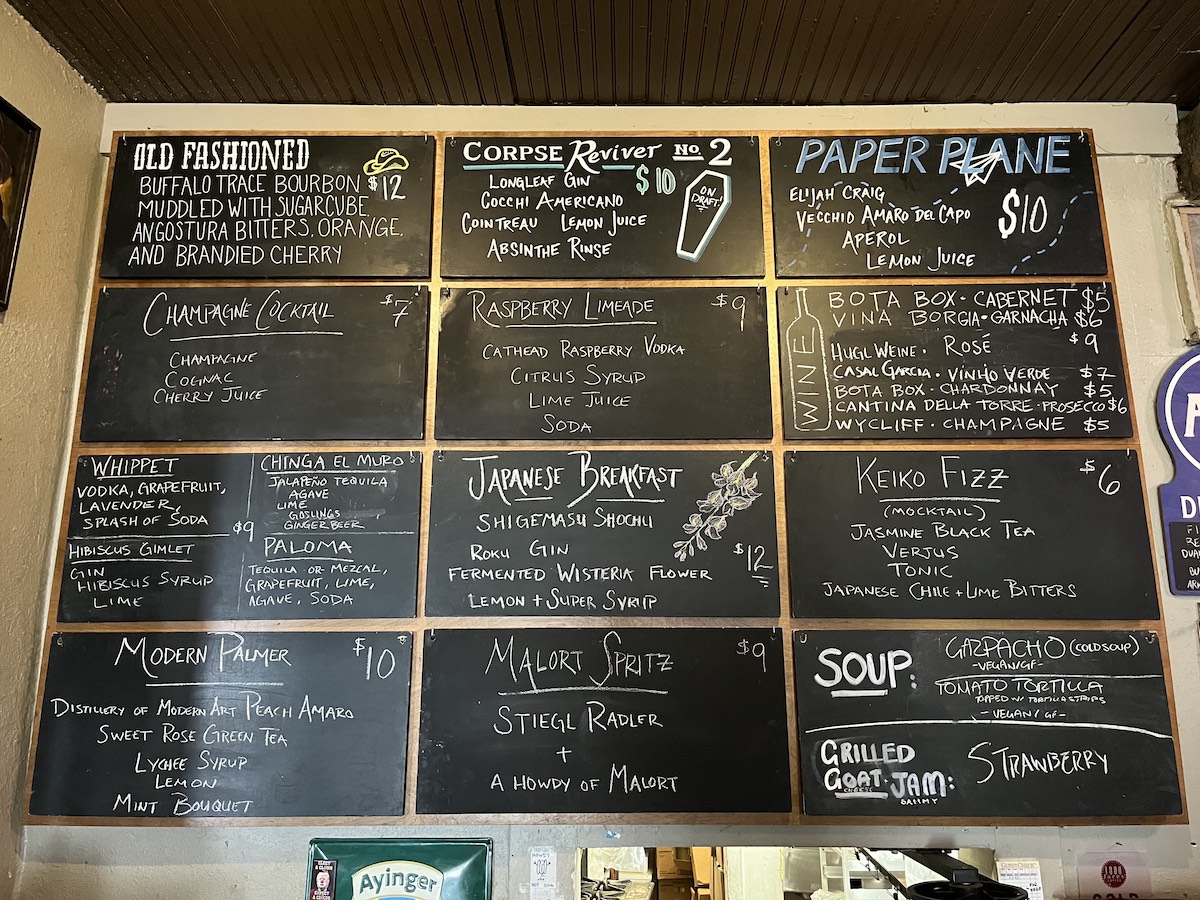 OLD FASHIONED
BUFFALO TRACE BOURBON $12
MUDDLED WITH SUGARCUBE
ANGOSTURA BITTERS, ORANGE,
AND BRANDIED CHERRY
CORPSE REVIVER No. 2
LONGLEAF GIN $10
COCCHI AMERICANO
COINTREAU LEMON JUICE
ABSINTHE RINSE
ON
DRAFT!
PAPER PLANE
ELIJAH CRAIG
VECCHIO AMARO DEL CAPO
APEROL
LEMON JUICE
$10
CHAMPAGNE COCKTAIL $7
CHAMPAGNE
COGNAC
CHERRY JUICE
RASPBERRY LIMEADE $9
CATHEAD RASPBERRY VODKA
CITRUS SYRUP
LIME JUICE
SODA
WINE
BOTA BOX · CABERNET $5
VINA BORGIA · GARNACHA $6
HUGL WEINE · ROSÉ $9
CASAL GARCIA · VINHO VERDE $7
BOTA BOX · CHARDONNAY $5
CANTINA DELLA TORRE · PROSECCO $6
WYCLIFF · CHAMPAGNE $5
WHIPPET
VODKA, GRAPEFRUIT,
LAVENDER,
SPLASH OF SODA
$9
CHINGA EL MURO
JALAPEÑO TEQUILA
AGAVE
LIME
GOSLINGS
GINGER BEER
HIBISCUS GIMLET
GIN
HIBISCUS SYRUP
LIME
PALOMA
TEQUILA OR MEZCAL,
GRAPEFRUIT, LIME,
AGAVE, SODA
JAPANESE BREAKFAST
SHIGEMASU SHOCHU
ROKU GIN
FERMENTED WISTERIA FLOWER
LEMON + SUPER SYRUP
$12
KEIKO FIZZ $6
(MOCKTAIL)
JASMINE BLACK TEA
VERJUS
TONIC
JAPANESE CHILE + LIME BITTERS
MODERN PALMER $10
DISTILLERY OF MODERN ART PEACH AMARO
SWEET ROSE GREEN TEA
LYCHEE SYRUP
LEMON
MINT BOUQUET
MALORT SPRITZ $9
STIEGL RADLER
+
A HOWDY OF MALORT
SOUP:
GAZPACHO (COLD SOUP)
-VEGAN/GF-
TOMATO TORTILLA
TOPPED W/ TORTILLA STRIPS
-VEGAN/GF-
GRILLED
GOAT JAM:
CHEESE
STRAWBERRY
Ayinger